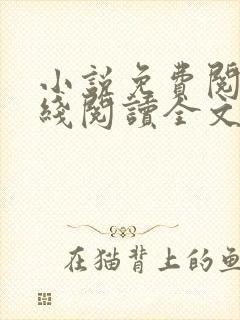 小説免費閱
綫閱讀全文
在猫背上的鱼